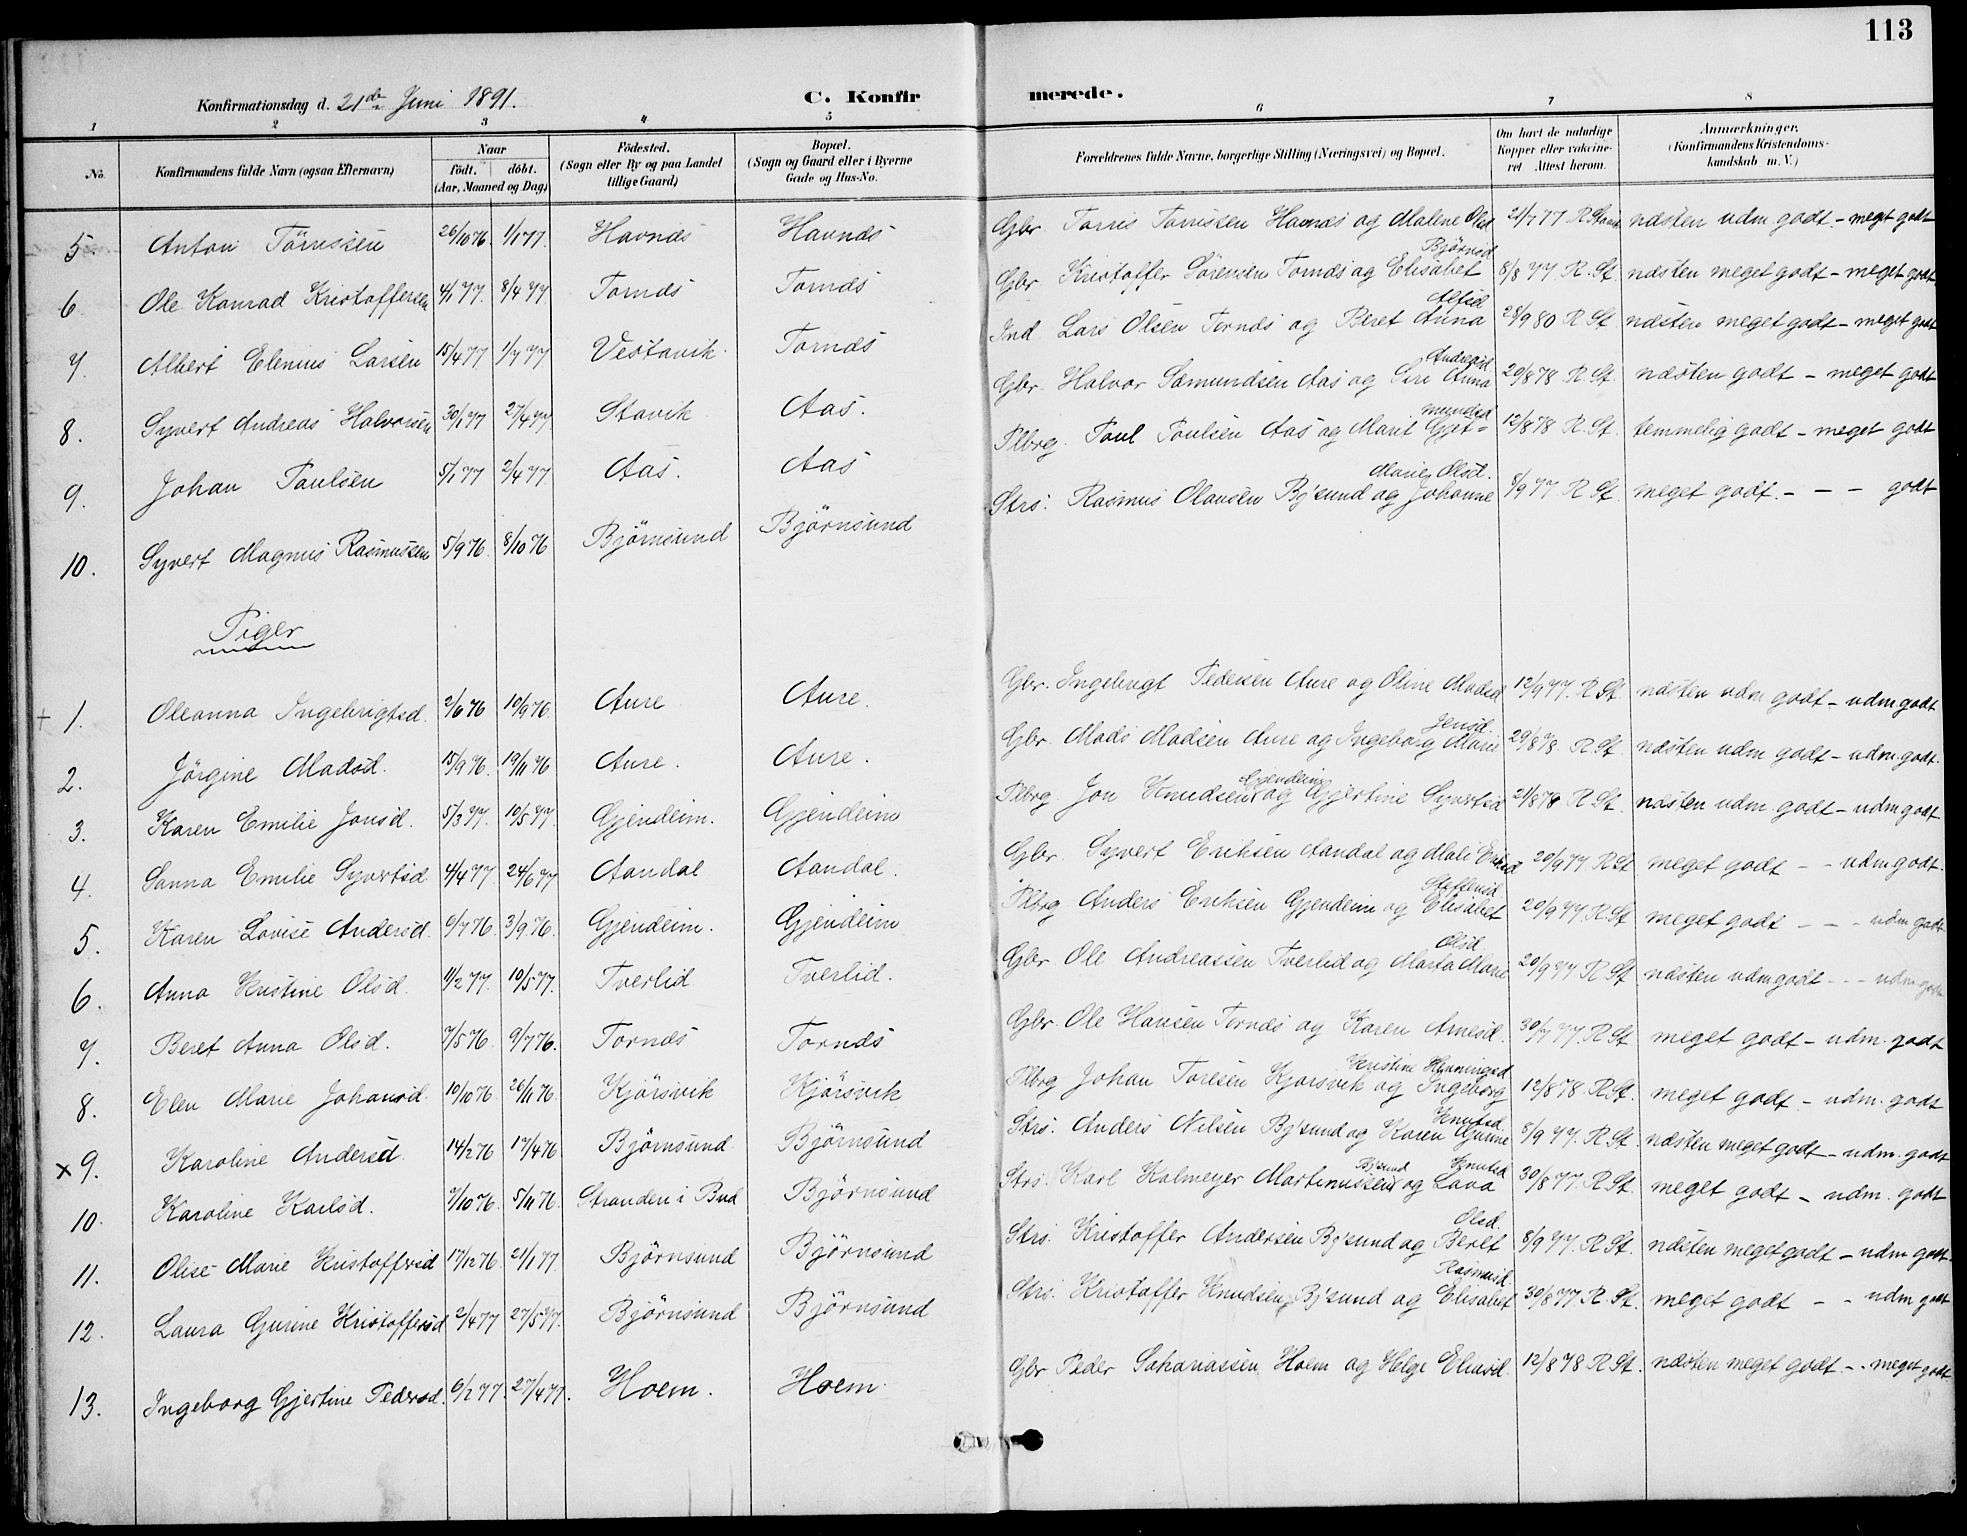 113
Konfirmationsdag d. 21de Juni 1891. C. Konfirmerede.
1 2 3 4 5 6 7 8
No. Konfirmandens fulde Navn (ogsaa Efternavn) Naar födt. döbt. (Aar, Maaned og Dag) Födested. (Sogn eller By og paa Landet tillige Gaard) Bopæl. (Sogn og Gaard eller i Byerne Gade og Hus-No. Forældrenes fulde Navne, borgerlige Stilling (Næringsvei) og Bopæl. Om havt de naturlige Kopper eller vakcineret. Attest herom. Anmærkninger. (Konfirmandens Kristendomskundskab m. V.)
5. Anton Törressen 26/10 76 1/1 77 Havnæs Havnæs Gbr. Torris Torrissen Havnæs og Malene Olsd 21/7 77 R. næsten udm godt - meget godt
6. Ole Konrad Kristoffersen 4/1 77. 8/4 77 Tornæs Tornæs Gbr. Kristoffer Sörensen Tornæs og Elisabet Björnsd 8/8 77 R. St. næsten meget godt - meget godt
7. Albert Elenius Larsen 15/4 77 1/7 77 Vestavik. Tornæs Ind. Lars Olsen Tornæs og Beret Anna Alfsd 28/9 80 R St. næsten meget godt - meget godt
8. Syvert Andreas Halvorsen 30/1 77 27/4 77 Stavik Aas. Gbr. Halvor Sæmundsen Aas og Siri Anna Andreasd 20/8 78 R. St. næsten godt - meget godt
9. Johan Paulsen 5/1 77 2/4 77 Aas. Aas Plbrg. Paul Paulsen Aas og Marit Gjet=mundsd 12/8 78 R. St. temmelig godt - meget godt
10. Syvert Magnus Rasmussen 5/9 76. 8/10 76 Björnsund Björnsund Strs: Rasmus Olausen Bj'sund og Johanne Marie Olsd. 8/9 77 R St. meget godt. - - - godt
Piger
+ 1. Oleanna Ingebrigtsd. 2/6 76 10/9 76. Aure Aure. Gbr. Ingebrigt Pedersen Aure og Oline Madsd 12/9 77. R St. næsten udm godt - udm godt
2. Jörgine Madsd. 15/9 76. 19/11 76 Aure. Aure. Gbr. Mads Madsen Aure og Ingeborg Marie Jensd. 29/8 78. R St. næsten udm godt - udm. godt.
3. Karen Emilie Jonsd. 5/3 77. 10/5 77. Gjendeim. Gjendeim Plbrg Jon Knudsen Gjendeim og Gjertine Syvertsd 21/8 78 R St. næsten udm. godt - udm godt
4. Sanna Emilie Syvertsd. 4/4 77. 24/6 77 Aandal Aandal. Gbr. Syvert Eriksen Aandal og Mali Eriksd 20/9 77 R St meget godt - - udm godt.
5. Karen Lovise Andersd. 6/7 76. 3/9 76. Gjendeim. Gjendeim Plbrg. Anders Eriksen Gjendeim og Elisabet Steffensd 20/9 77 R. St meget godt - - - udm godt
6. Anna Kristine Olsd. 11/2 77. 10/5 77. Tverlid Tverlid. Gbr. Ole Andreassen Tverlid og Marta Marie Olsd. 20/9 77 R St næsten udm godt - - - udm godt
7. Beret Anna Olsd. 7/5 76. 9/7 76. Tornæs Tornæs Gbr. Ole Hansen Tornæs og Karen Arnesd. 30/7 77. R St meget godt - udm. godt
8. Elen Marie Johansd. 10/10 76 26/11 76. Kjörsvik Kjörsvik Plbrg Johan Toresen Kjorsvik og Ingeborg Kristine Henningsd 12/8 78. R St. meget godt - udm. godt
x 9. Karoline Andersd. 14/2 76 17/4 76 Björnsund Björnsund Strs: Anders Nilsen Bj'sund og Karen Gurine Knutsd. 8/9 77. R. St. næsten meget godt - udm. godt
10. Karoline Karlsd. 7/10 76. 5/11 76. Stranden i Bud Björnsund Strs: Karl Kolmeyer Martinussen Bj'sund og Lava Knutsd 30/8 77. R St. meget godt - udm. godt
11. Olise Marie Kristoffersd 17/12 76. 21/1 77. Björnsund Björnsund Strs: Kristoffer Andersen Bj'sund og Beret Olsd. 8/9 77. R St. næsten meget godt - udm godt.
12. Laura Gurine Kristoffersd 2/4 77 27/5 77. Björnsund Björnsund Strs: Kristoffer Knudsen Bj'sund og Elisabet Rasmusd. 30/8 77 R. St. meget godt - - udm godt
13. Ingeborg Gjertine Pedersd. 6/2 77. 27/4 77. Hoem. Hoem. Gbr Peder Sakariassen Hoem og Helge Eliasd. 12/8 78 R St. næsten meget godt - . meget godt